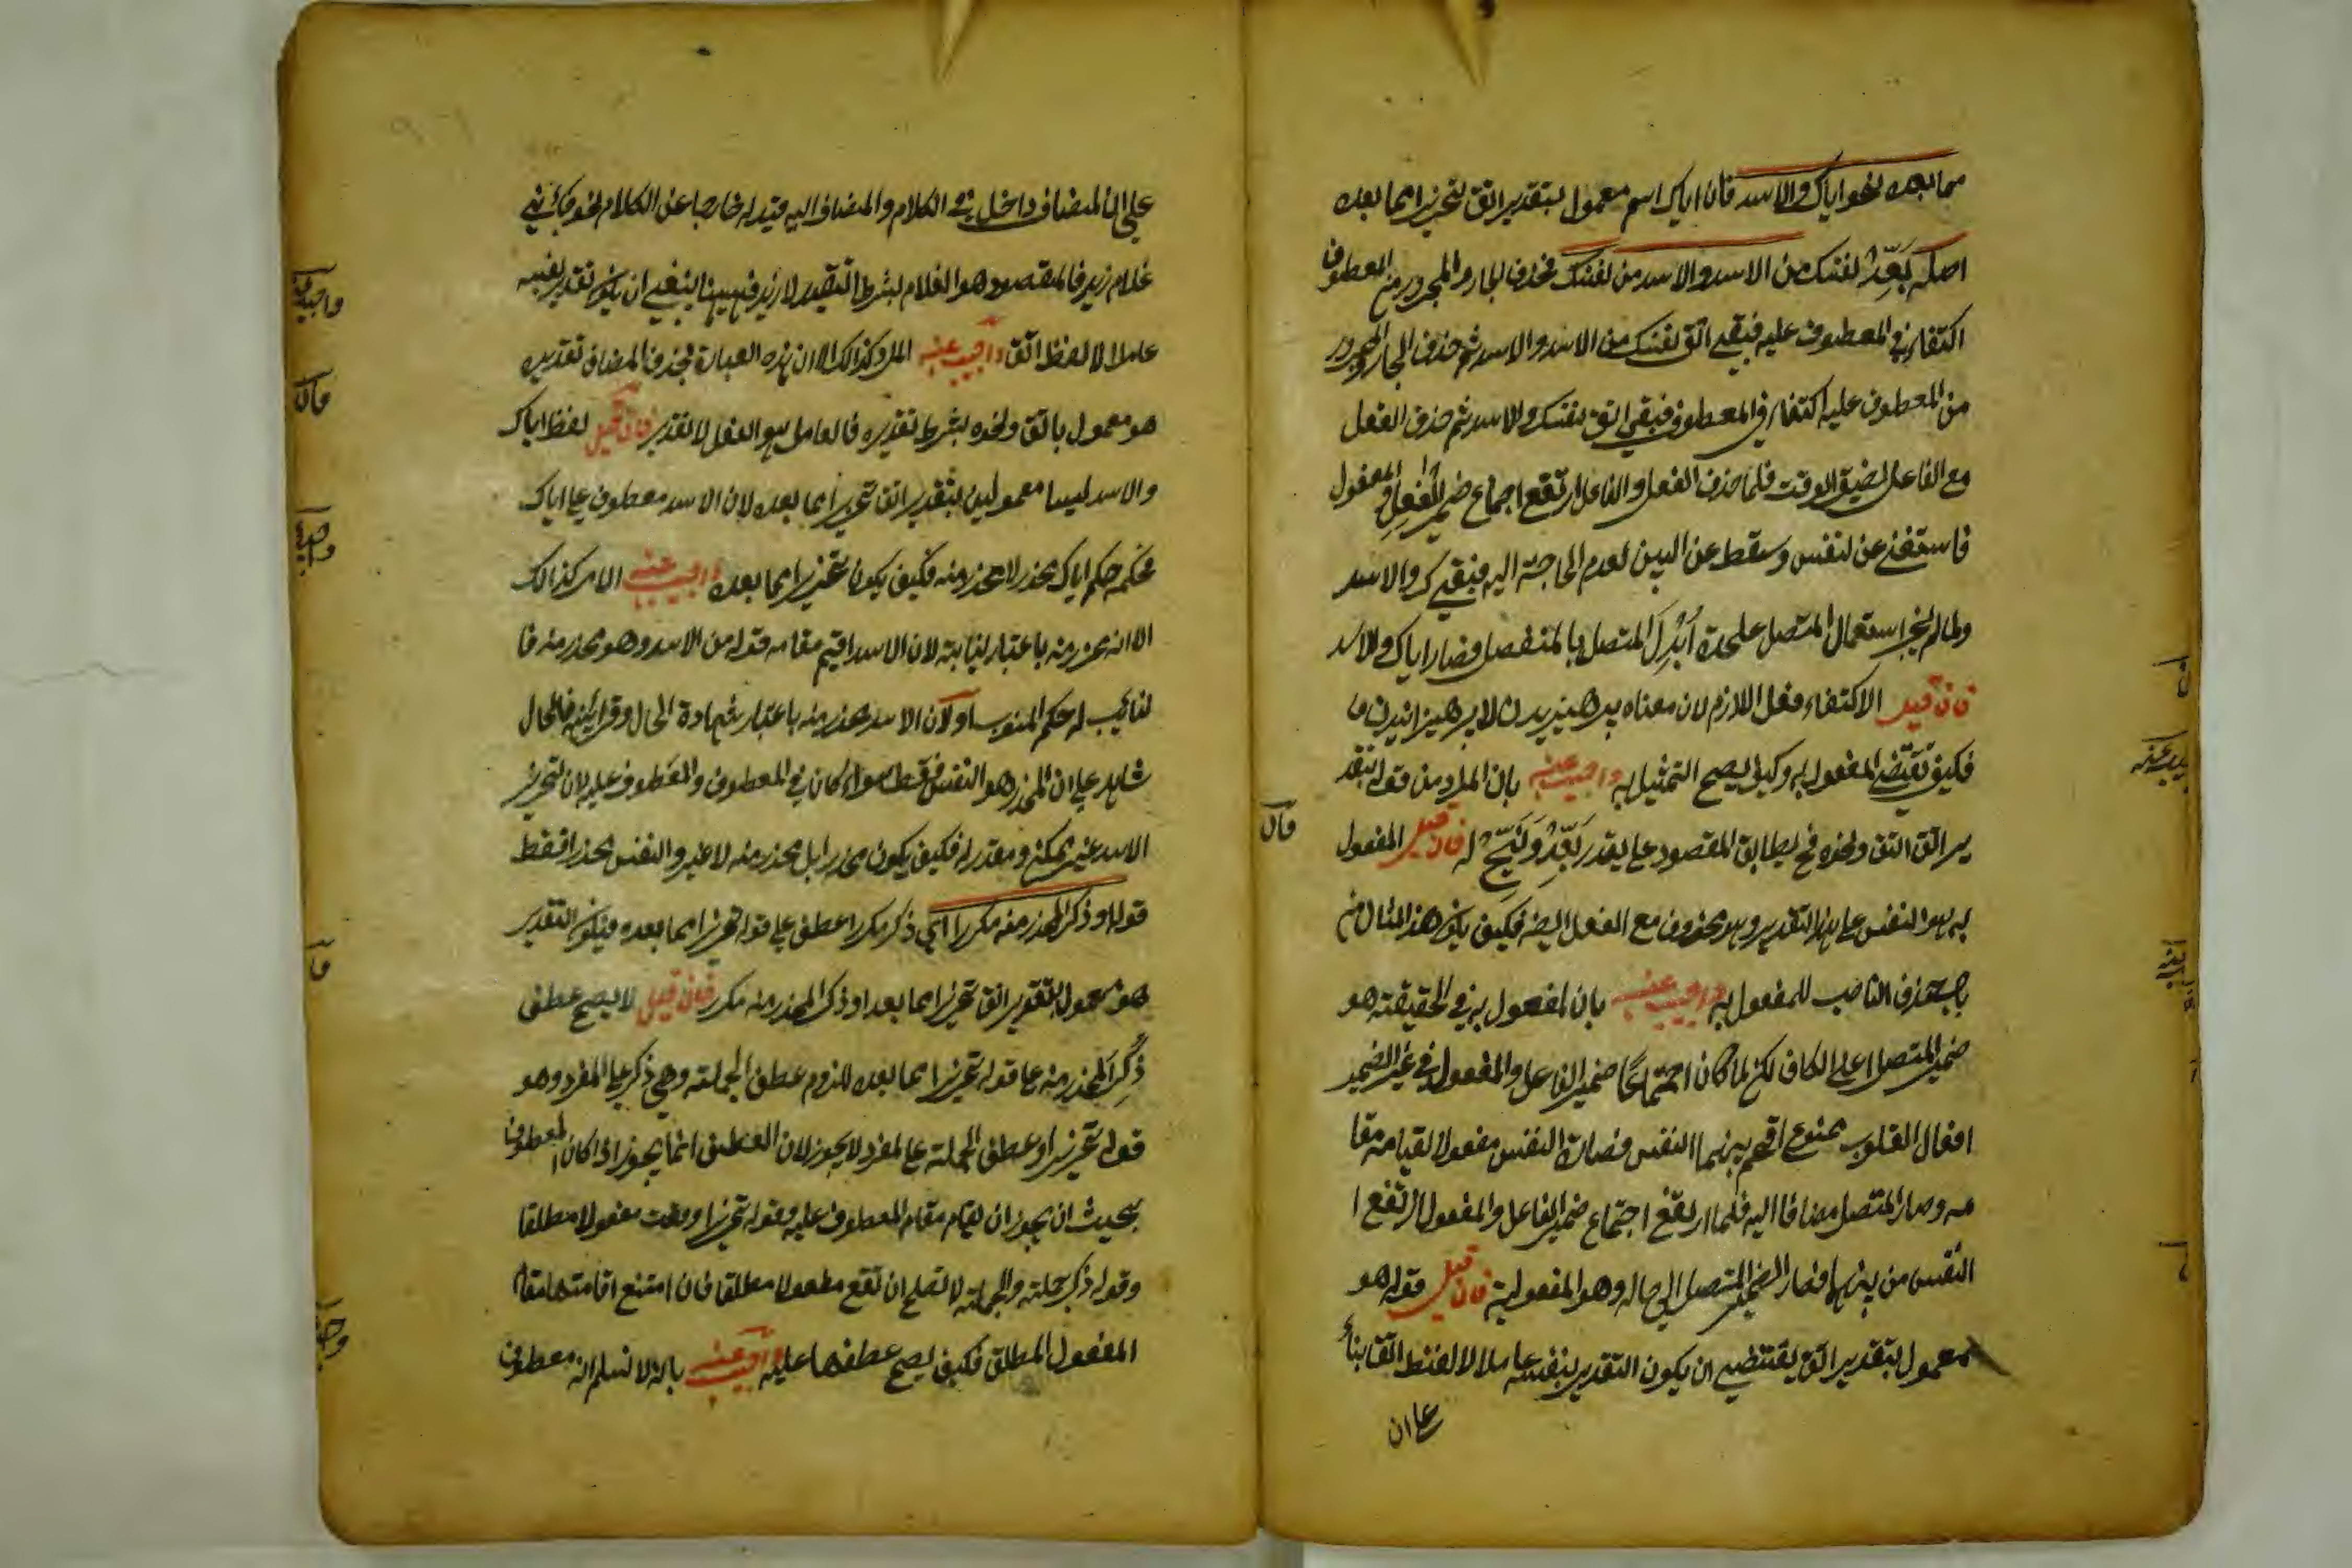 مما بعده نحو اياك والاسد فان اياك اسم معمول بتقدير اتق تحذيرا مما بعده
اصله بَعِّدْ نفسك من الاسد والاسد من نفسك فحذف الجار والمجرور من المعطوف
اكتفاء في المعطوف عليه فبقي اتق نفسك من الاسد والاسد ثم حذف الجار والمجرور
من المعطوف عليه اكتفاء في المعطوف فبقي اتق نفسك والاسد ثم حذف الفعل
مع الفاعل لضيق الوقت فلما حذف الفعل والفاعل ارتفع اجتماع ضمير الفاعل والمفعول
فاستغنى عن لنفس وسقط عن البين لعدم الحاجة اليه فبقي ك والاسد
ولما لم يجز استعمال المتصل علحدة اُبْدِلَ المتصل بالمنفصل فصار اياك والاسد
فان قيل الاكتفاء فعل اللازم لان معناه پرهيزيدن لا پرهيزانيدن
فكيف تقتضي المفعول به وكيف يصح التمثيل به واجيب عنه بان المراد من قوله بتقد
ير اتق اتق ونحوه فح يطابق المقصود على يقدر بَعِّدْ وَنَحِّ له فان قيل المفعول
به هو النفس على هذا التقدير وهو محذوف مع الفعل ايضه فكيف يكون هذا المثال من
باب حذف الناصب للمفعول به واجيب عنه بان المفعول به في الحقيقة هو
ضمير المتصل اعني الكاف لكن لما كان اجتماع ضمير الفاعل والمفعول في غير الضمير
افعال القلوب ممنوع اقحم بينهما النفس فصارت النفس مفعولا لقيامه مقا
مه وصار المتصل مضافا اليه فلما ارتفع اجتماع ضمير الفاعل والمفعول ارتفع ا
النفس من بينهما فصار الضمير المتصل الى حاله وهو المفعولية فان قيل قوله هو
معمول بتقدير اتق يقتضي ان يكون التقدير بنفسه عاملا لا لفظ اتق بناء
على ان
على ان المضاف داخل في الكلام والمضاف اليه قيد له خارجا عن الكلام نحو جائني
غلام زيد فالمقصود هو الغلام بشرط التقييد لا زيد فههنا ينبغي ان يكون تقدير نفسه
عاملا لا لفظ اتق واجيب عنه المراد كذالك الا ان هذه العبارة بحذف المضاف تقديره
هو معمول باتق ونحوه بشرط تقديره فالعامل هو الفعل لا تقدير فان قيل لفظ اياك
والاسد ليسا معمولين بتقدير اتق تحذيرا مما بعده لان الاسد معطوف على اياك
فحكمه حكم اياك محذر لا محذر منه فكيف يكون تحذيرا مما بعده واجيب عنه الامر كذالك
الا انه محذر منه باعتبار نيابته لان الاسد اقيم مقامه قوله من الاسد وهو محذر منه فا
لنائب له حكم المنوب او لان الاسد محذر منه باعتبار شهادة الحال وقرائنه فالحال
شاهد على ان المحذر هو النفس فقط سواء كان في المعطوف والمعطوف عليه لان تحذير
الاسد غير ممكن ومقدر له فكيف يكون محذرا بل محذر منه لا غير والنفس محذر فقط
قوله او ذكر المحذر منه مكررا اي ذكر مكررا عطف على قوله تحذيرا مما بعده فيكون التقدير
هو معمول بتقدير اتق تحذيرا مما بعد او ذكر المحذر منه مكرر فان قيل لا يصح عطف
ذُكِرَ المحذر منه على قوله تحذيرا مما بعده للزوم عطف الجملة وهي ذكر على المفرد وهو
قوله تحذيرا وعطف الجملة على المفرد لا يجوز لان العطف انما يجوز اذا كان المعطوف
بحيث ان يجوز ان يقام مقام المعطوف عليه وقوله تحذيرا وقعت مفعولا مطلقا
وقوله ذكر جملة والجملة لا تصلح ان تقع مفعولا مطلقا فان امتنع اقامتها مقام
المفعول المطلق فكيف يصح عطفها عليه واجيب عنه بانه لا نسلم انه معطوف